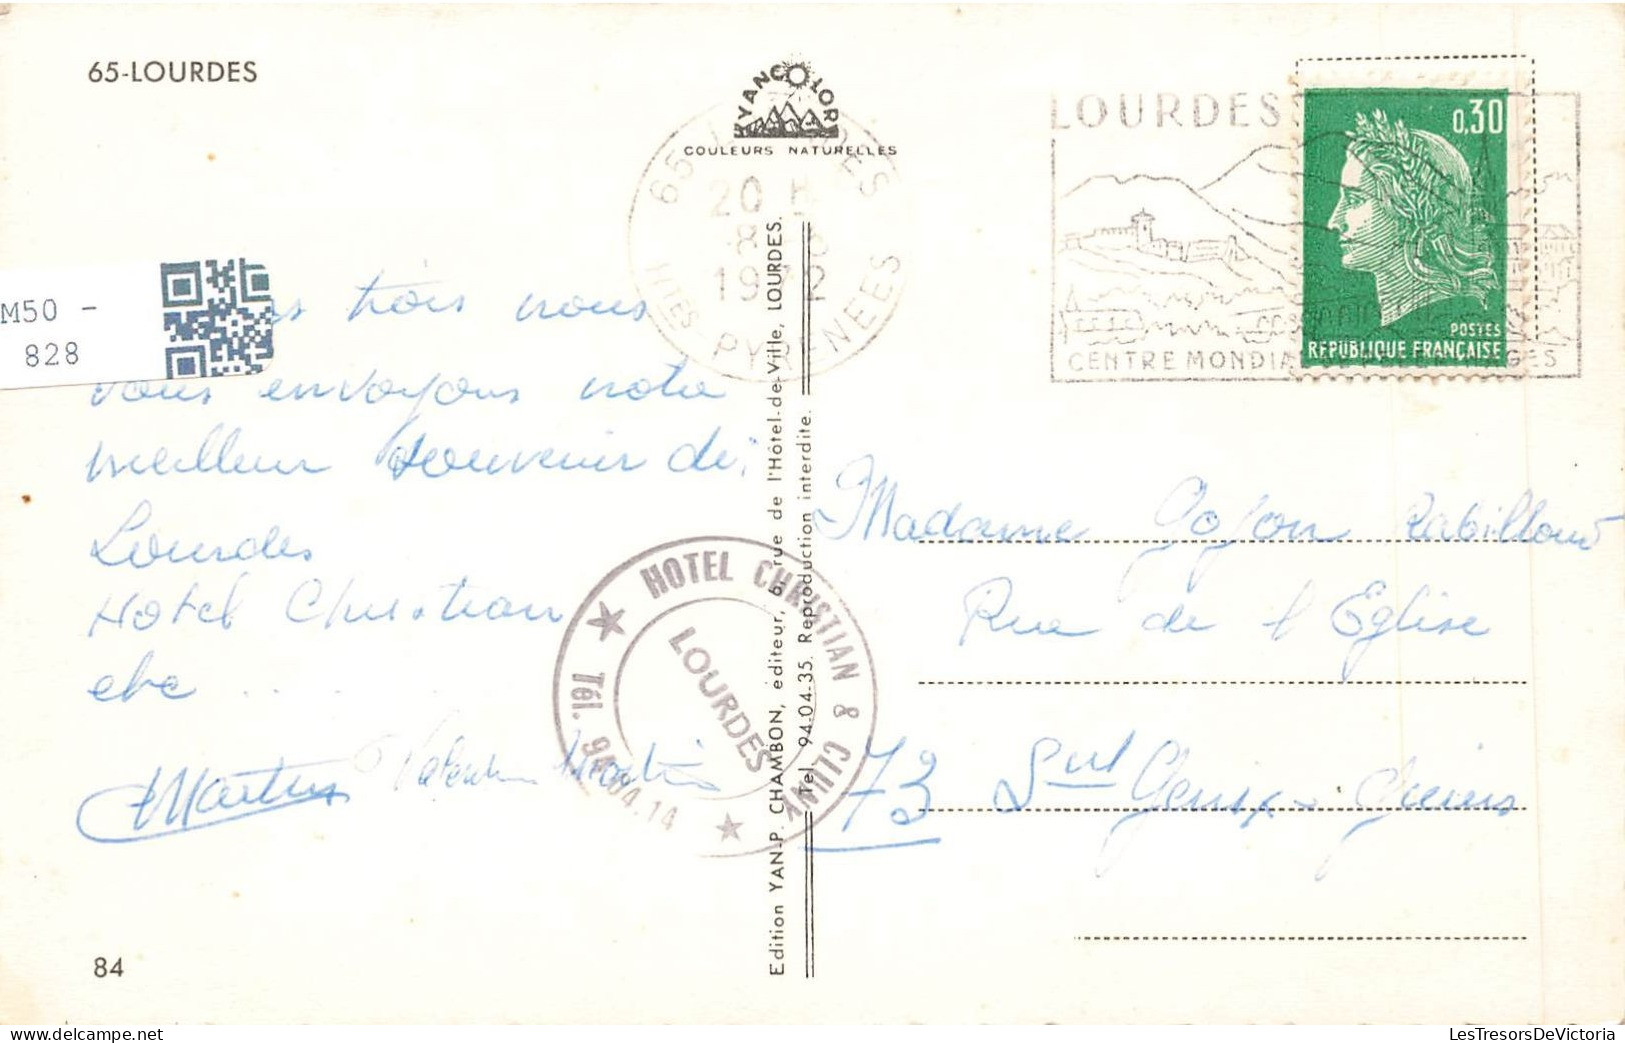 65-LOURDES
YANCOLOR
COULEURS NATURELLES
20 H
8
1972
HTES PYRENEES
LOURDES
CENTRE MONDIAL
0,30
POSTES
REPUBLIQUE FRANÇAISE
M50 -
828
trois nous
vous envoyons notre
meilleur souvenir de
Lourdes
Hotel Christian
etc ...
Martins Valentin Martins
HOTEL CHRISTIAN & CLUNY
LOURDES
Tél. 94.04.14
Edition YAN-P. CHAMBON, éditeur, 6, rue de l'Hôtel-de-Ville, LOURDES.
Tel. 94-04-35. Reproduction interdite.
Madame Gojon Rabilloud
Rue de l Eglise
73 Snt Genix-Guiers
84
LesTresorsDeVictoria @ delcampe.net